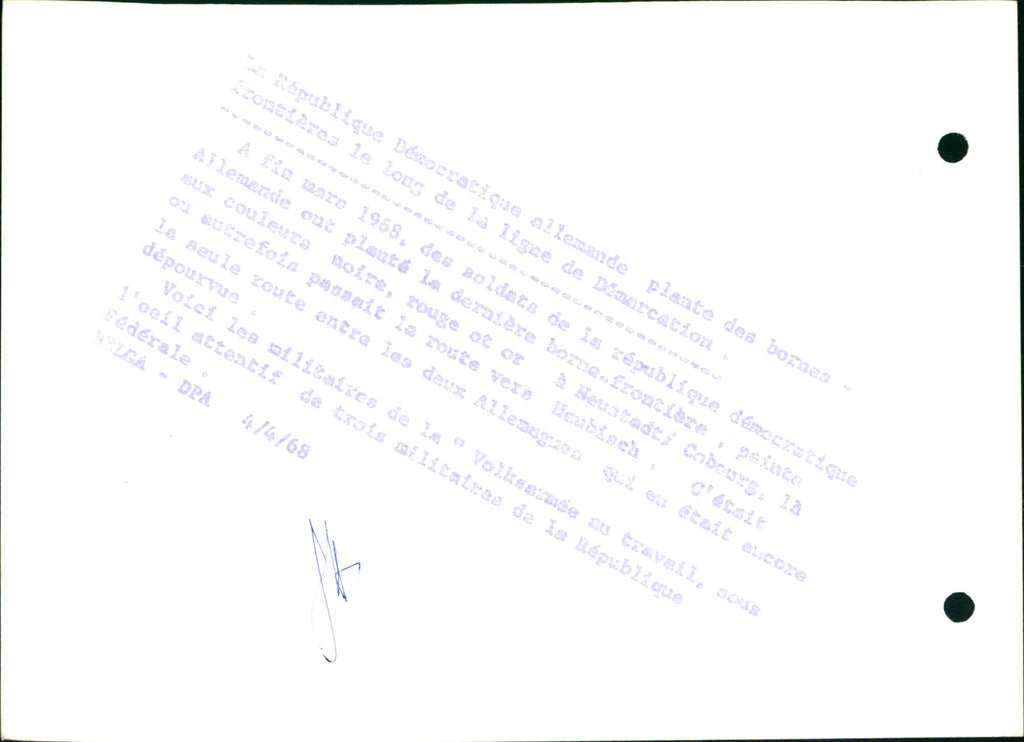 La République Démocratique allemande plante des bornes -
frontières le long de la ligne de Démarcation .
--------------------------------------------------
A fin mars 1968, des soldats de la république démocratique
Allemande ont planté la dernière borne-frontière , peinte
aux couleurs noire, rouge et or à Neustadt/ Cobourg, là
ou autrefois passait la route vers Heubisch . C'était
la seule route entre les deux Allemagnes qui en était encore
dépourvue .
Voici les militaires de la " Volksarmée au travail, sous
l'oeil attentif de trois militaires de la République
Fédérale .
BELGA - DPA 4/4/68